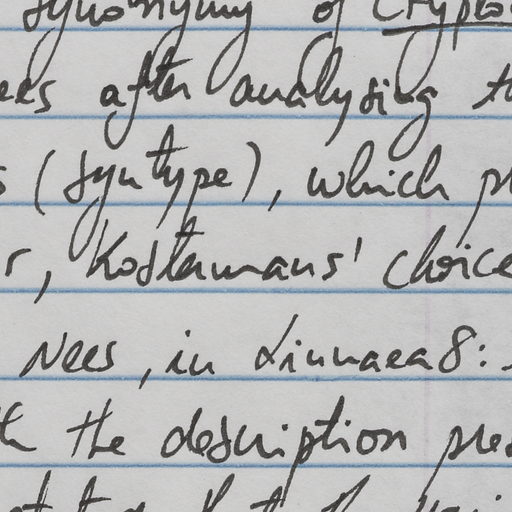 synonymy of Crypto
ees after analysing th
s (syntype), which p
r, Kostermans' choice
Nees, in Linnaea 8:
th the description pres